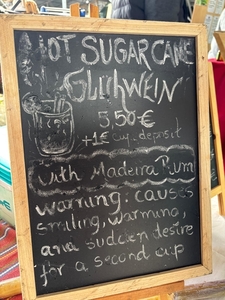 HOT SUGAR CANE
GLÜHWEIN
5,50€
+1€ cup-deposit
with Madeira Rum
warning: causes
smiling, warming,
and sudden desire
for a second cup